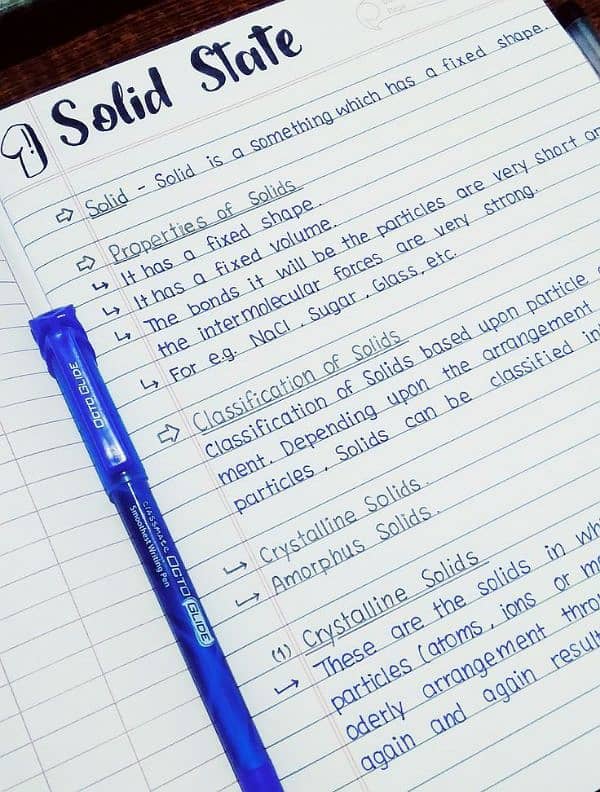 Solid State
Solid - Solid is a something which has a fixed shape.
Properties of Solids
It has a fixed shape.
It has a fixed volume.
The bonds it will be the particles are very short an
the intermolecular forces are very strong.
For e.g. NaCl, Sugar, Glass, etc.
Classification of Solids
Classification of Solids based upon particle
ment. Depending upon the arrangement
particles, Solids can be classified in
Crystalline Solids.
Amorphus Solids.
(1) Crystalline Solids
These are the solids in whi
particles (atoms, ions or m
oderly arrangement thro
again and again result
OCTO GLIDE
CLASSMATE OCTO GLIDE
Smoothest Writing Pen